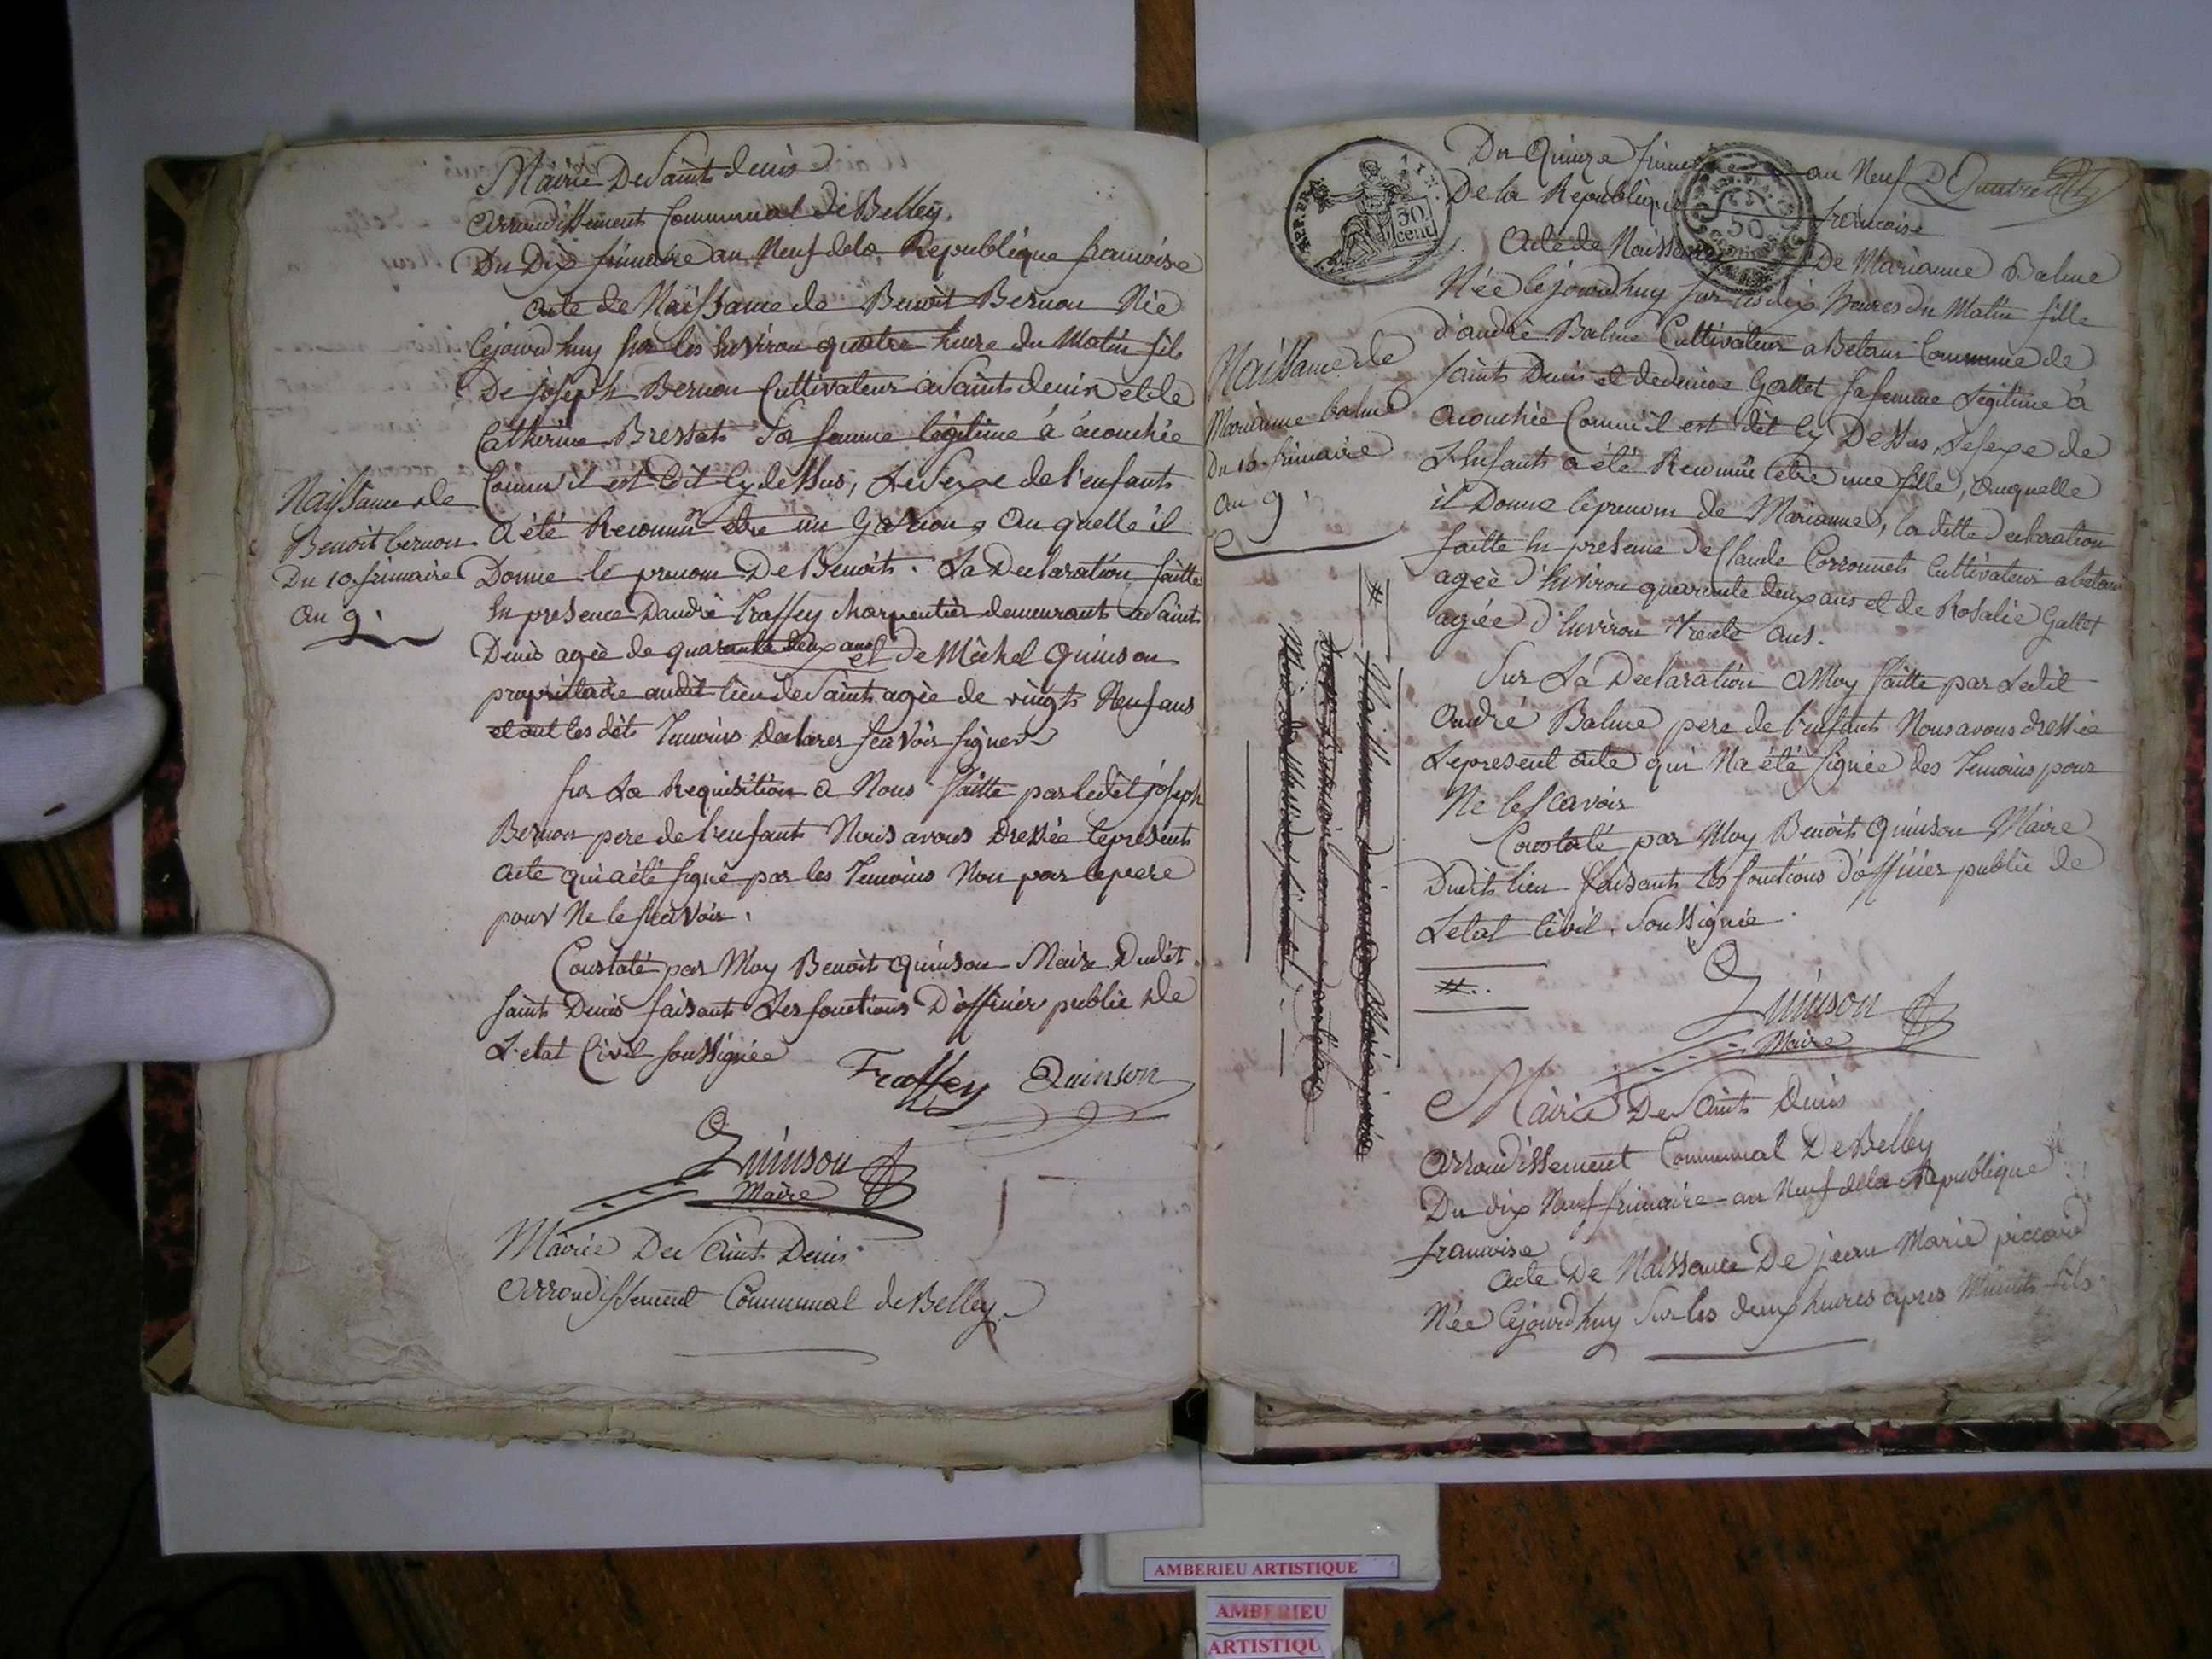 Mairie De Saint denis
arrondissement Communal de Belley.
Du Dix frimaire an Neuf de la Republique francoise
acte de Naissance de Benoit Bernon Née
Cejourdhuy sur les Environ quatre heure du Matin fils
De joseph Bernon Cultivateur a Saint denis et de
Catherine Bressat Sa femme legitime à acouchée
Comm'il est Dit Cy dessus, Le Sexe de l'enfants
a été Reconnu être un Garson, Au quelle il
Donne le prenom De Benoit. La Declaration faitte
En presence Dandré Traffey charpentier demeurant a Saint
Denis agée de quarante deux ans et de Michel Quinson
proprietaire audit lieu de Saint agée de vingt Neuf ans
et ont les dits Temoins Declarer scavoir signer
Sur La Requisition a Nous faitte par Ledit joseph
Bernon pere de l'enfant Nous avons Dressée le present
acte qui a été signé par les Temoins Non par le pere
pour Ne le scavoir.
Constaté par Moy Benoit Quinson Maire Dudit
Saint Denis faisant Les fonctions D'officier public de
L'etat Civil soussignée
Traffey Quinson
Quinson
Maire
Mairie De Saint Denis
Arrondissement Communal de Belley
Naissance de
Benoit bernon
Du 10 frimaire
an 9.
APP. PR.
30
cent
30
Du Quinze frimaire an Neuf Quatre
De la Republique francoise
Acte de Naissance De Marianne Balme
Née Cejourdhuy sur les dix heures du Matin fille
d'andré Balme Cultivateur a Betans Commune de
Saint Denis et de denise Gallet Sa femme Legitime à
acouchée Comm'il est dit Cy Dessus, Le sexe de
L'Enfants a été Reconnue être une fille, auquelle
il Donne le prenom de Marianne, la ditte Declaration
faitte En presence de Claude Corronnet Cultivateur a betans
agée d'Environ quarante deux ans et de Rosalie Gallet
agée d'Environ trente ans.
Sur La Declaration a Moy faitte par Ledit
André Balme pere de l'enfant Nous avons dressée
Le present acte qui Na été signée des Temoins pour
Ne le scavoir
Constaté par Moy Benoit Quinson Maire
Dudit lieu faisant Les fonctions d'officier public de
L'etat Civil. Soussignée
Quinson
Maire
Mairie De Saint Denis
Arrondissement Communal De Belley
Du dix Neuf frimaire an Neuf de la Republique
francoise
Acte De Naissance De jean Marie piccard
Née Cejourdhuy Sur les deux heures apres Minuit fils
Naissance de
Marianne balme
Du 15 frimaire
an 9.